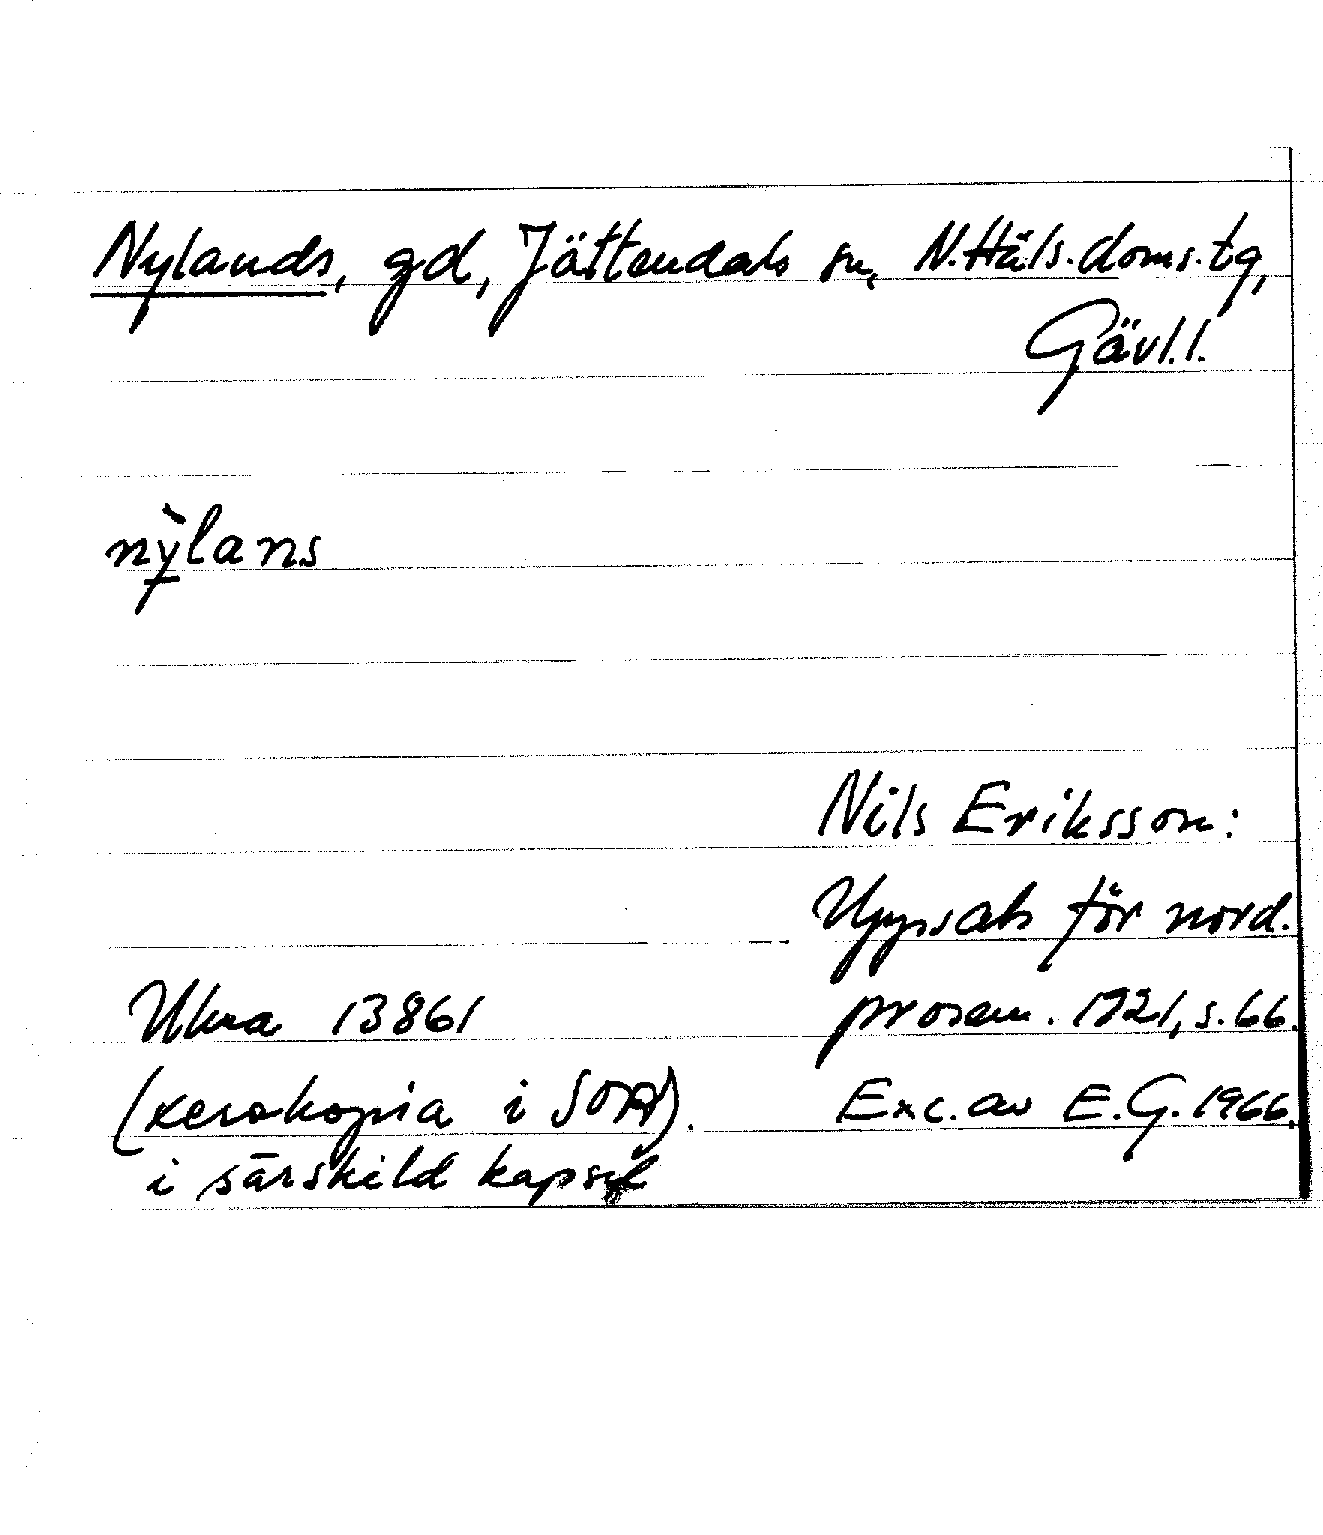 Nylands, gd, Jättendals sn, N. Häls. doms. tg,
Gävl. l.
nỳlans
Nils Eriksson:
Uppsats för nord.
Ukna 13861 prosem. 1921, s. 66.
(xerokopia i SOA). Exc. av E. G. 1966.
i särskild kapsel